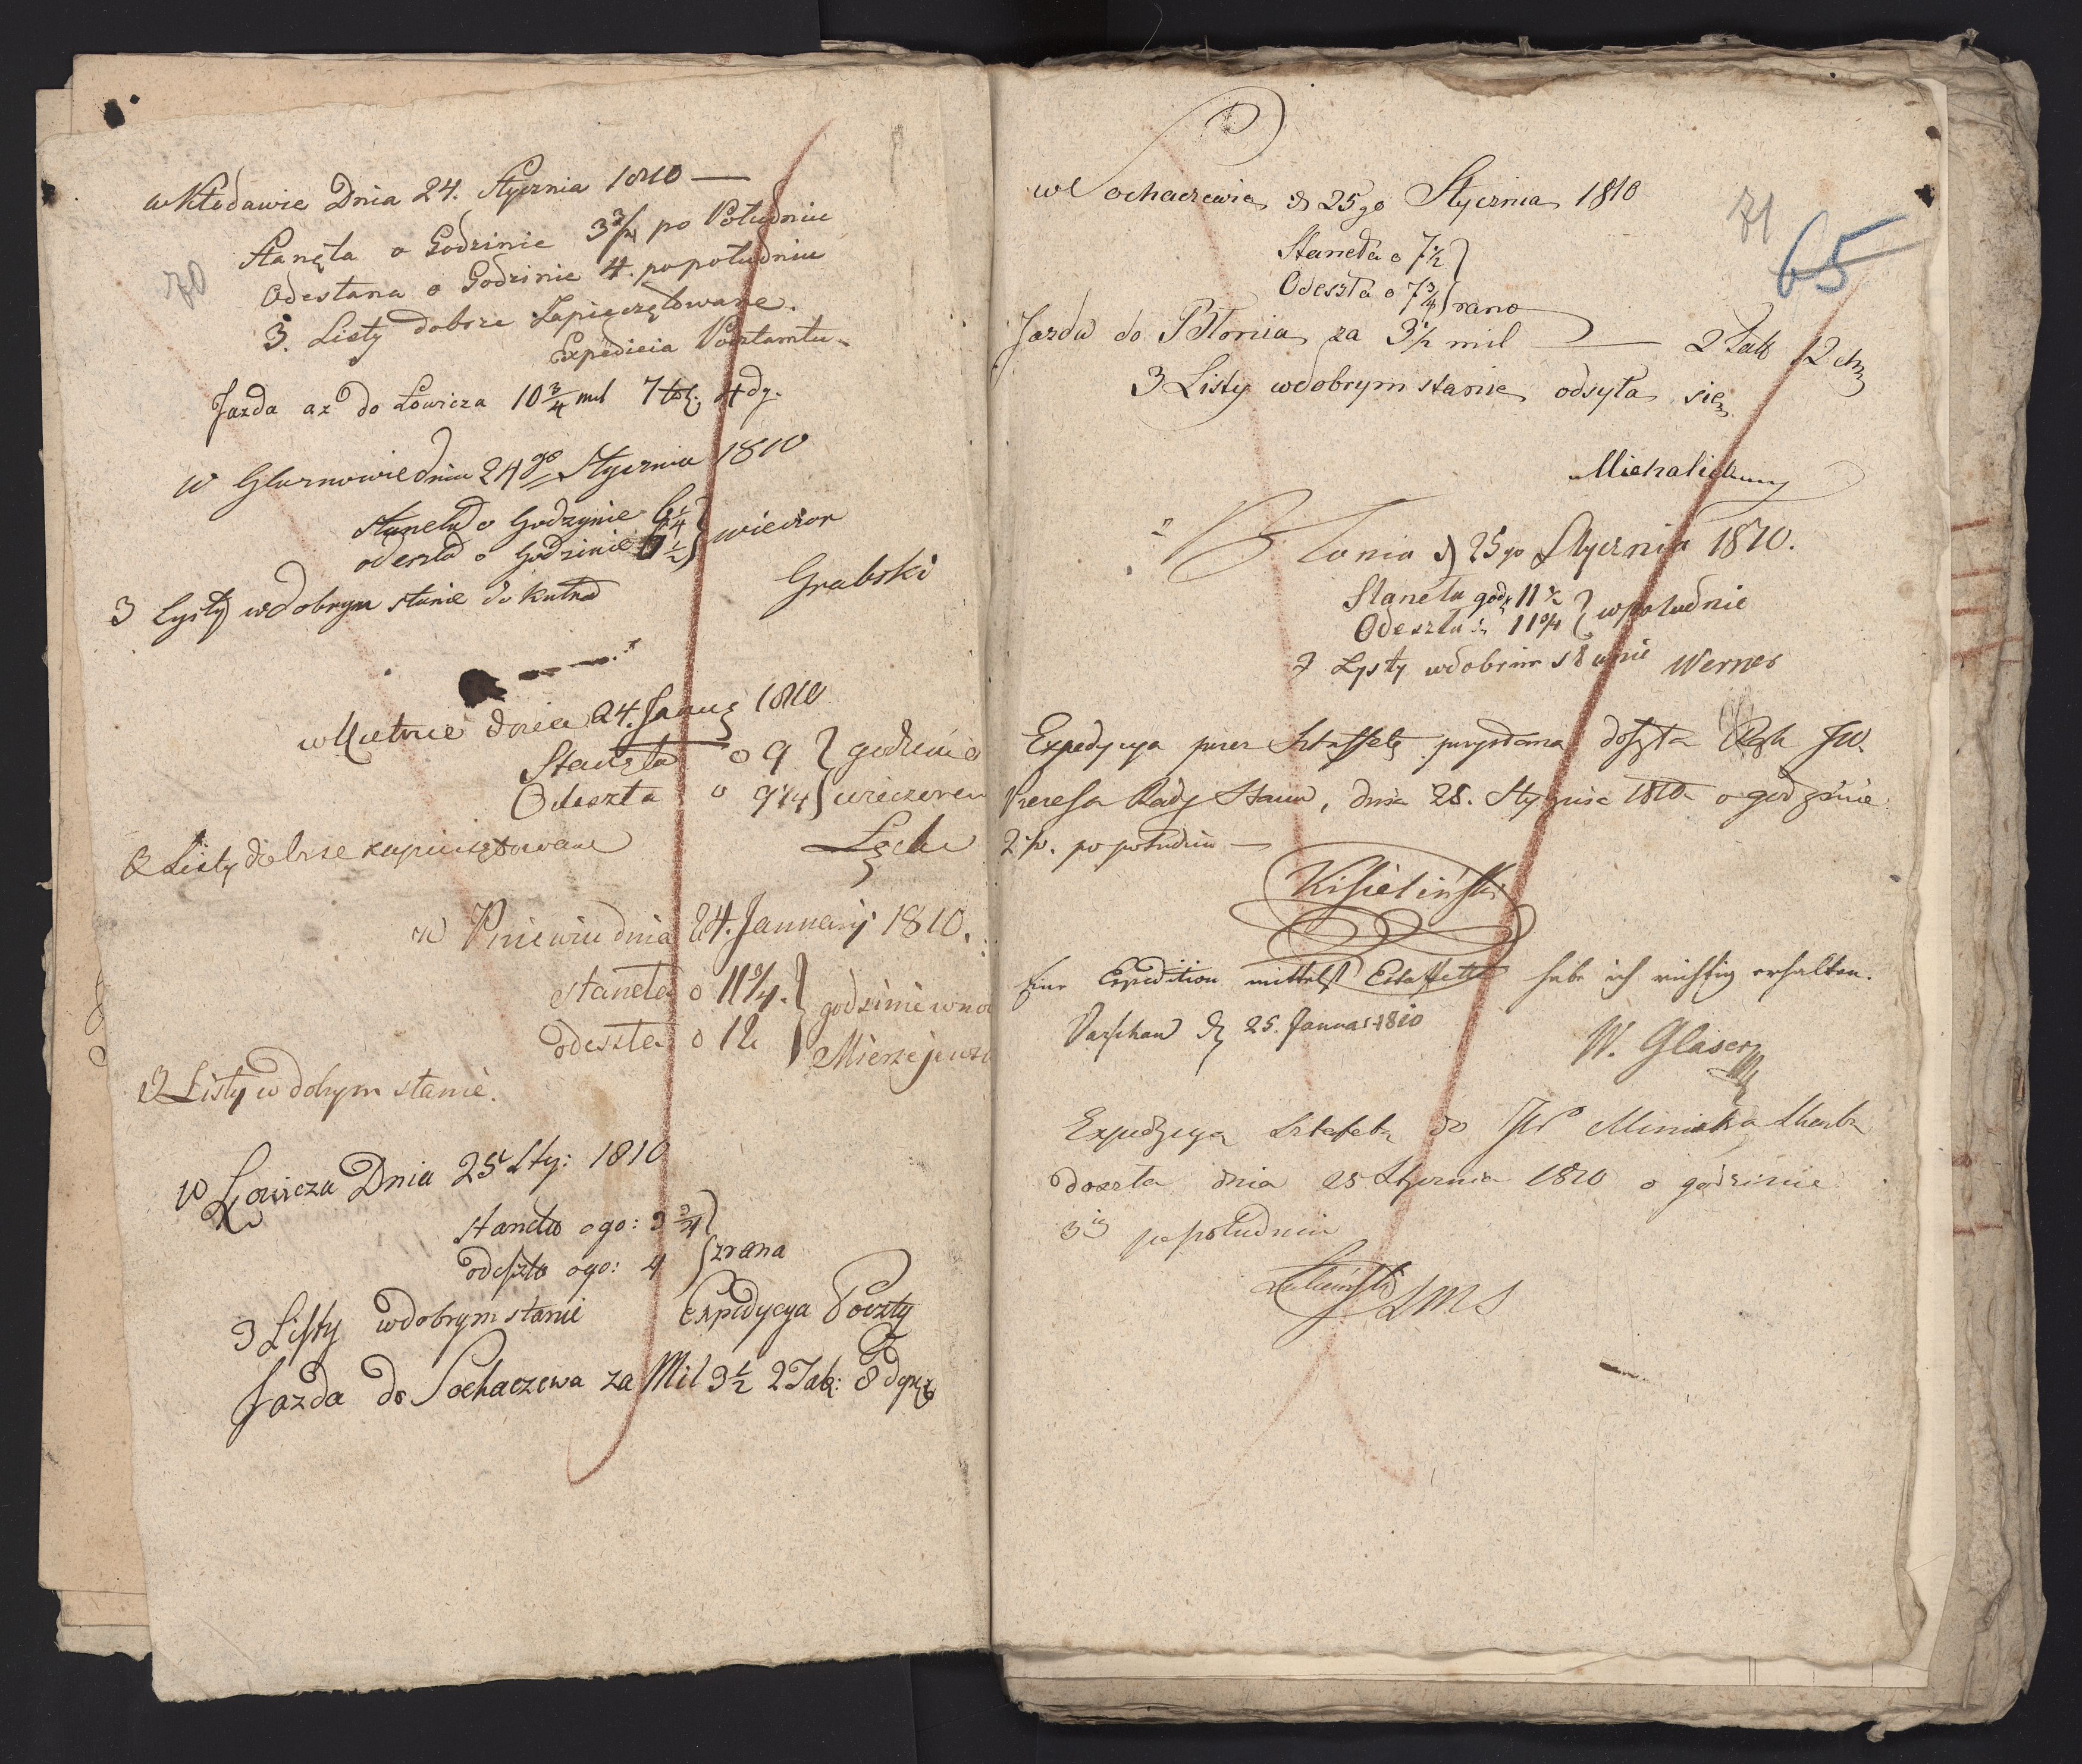 70
w Kłodawie Dnia 24. Stycznia 1810 —
Stanęła o Godzinie 3 3/4 po Południu
Odesłana o Godzinie 4. po południu
3. Listy dobrze Zapieczętowane.
Expedicia Pocztamtu
Jazda aż do Łowicza 10 3/4 mil 7 tal: 4 dg.
w Glaznowie dnia 24go Stycznia 1810
stanęła o Godzynie 6 1/4 } wieczor
odeszła o Godzinie 6 1/2
3 Lysty w dobrym stanie do Kutna Grabski
w Kutnie dnia 24. Janu 1810
Stanęła o 9 } godzinie
Odeszła o 9 1/4 wieczorem
3 Listy dobrze zapieczętowane
w Pniewiu dnia 24. January 1810.
stanęła o 11 3/4. } godzinie w no
odeszła o 12
Mierzejews
3 Listy w dobym stanie.
w Łowiczu Dnia 25 Sty: 1810
stanęła o go: 3 3/4 } z rana
odeszła o go: 4
3 Listy w dobrym stanie Expedycya Poczty
Jazda do Sochaczewa za Mil 3 1/2 2 Tal:
71
65
w Sochaczewie d 25go Stycznia 1810
Stanęła o 7 1/2 } rano
Odeszła o 7 3/4
Jazda do Błonia za 3 1/2 mil — 2 Tal
3 Listy w dobrym stanie odsyła się
Błonia d 25go Stycznia 1810.
Stanęła godz 11 1/2 } w południe
Odeszła 11 3/4
3 Lysty w dobrim stanie Werner
Expedycya przez Sztaffetę przysłana doszła JW.
Prezesa Rady Stanu, dnia 25. Stycznia 1810 o godzinie
2 1/2. po południu —
Kisieliński
Eine Expedition mittelst Estaffette habe ich richtig erhalten.
Varschau d 25. Januar 1810
W. Glaser
Expedycya Sztafeta do JW Ministra Skarbu
doszła dnia 25 Stycznia 1810 o godzinie
3 po południu